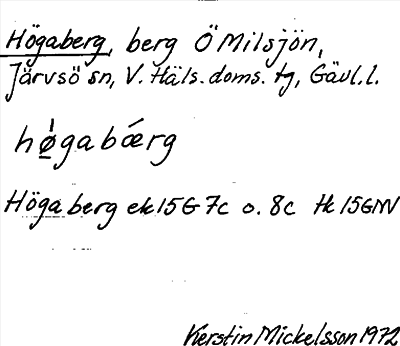 Högaberg, berg Ö Milsjön,
Järvsö sn, V. Häls. doms. tg, Gävl. l.
hǿ̲gabǽrg
Högaberg ek 15G 7c o. 8c tk 15GNV
Kerstin Mickelsson 1972